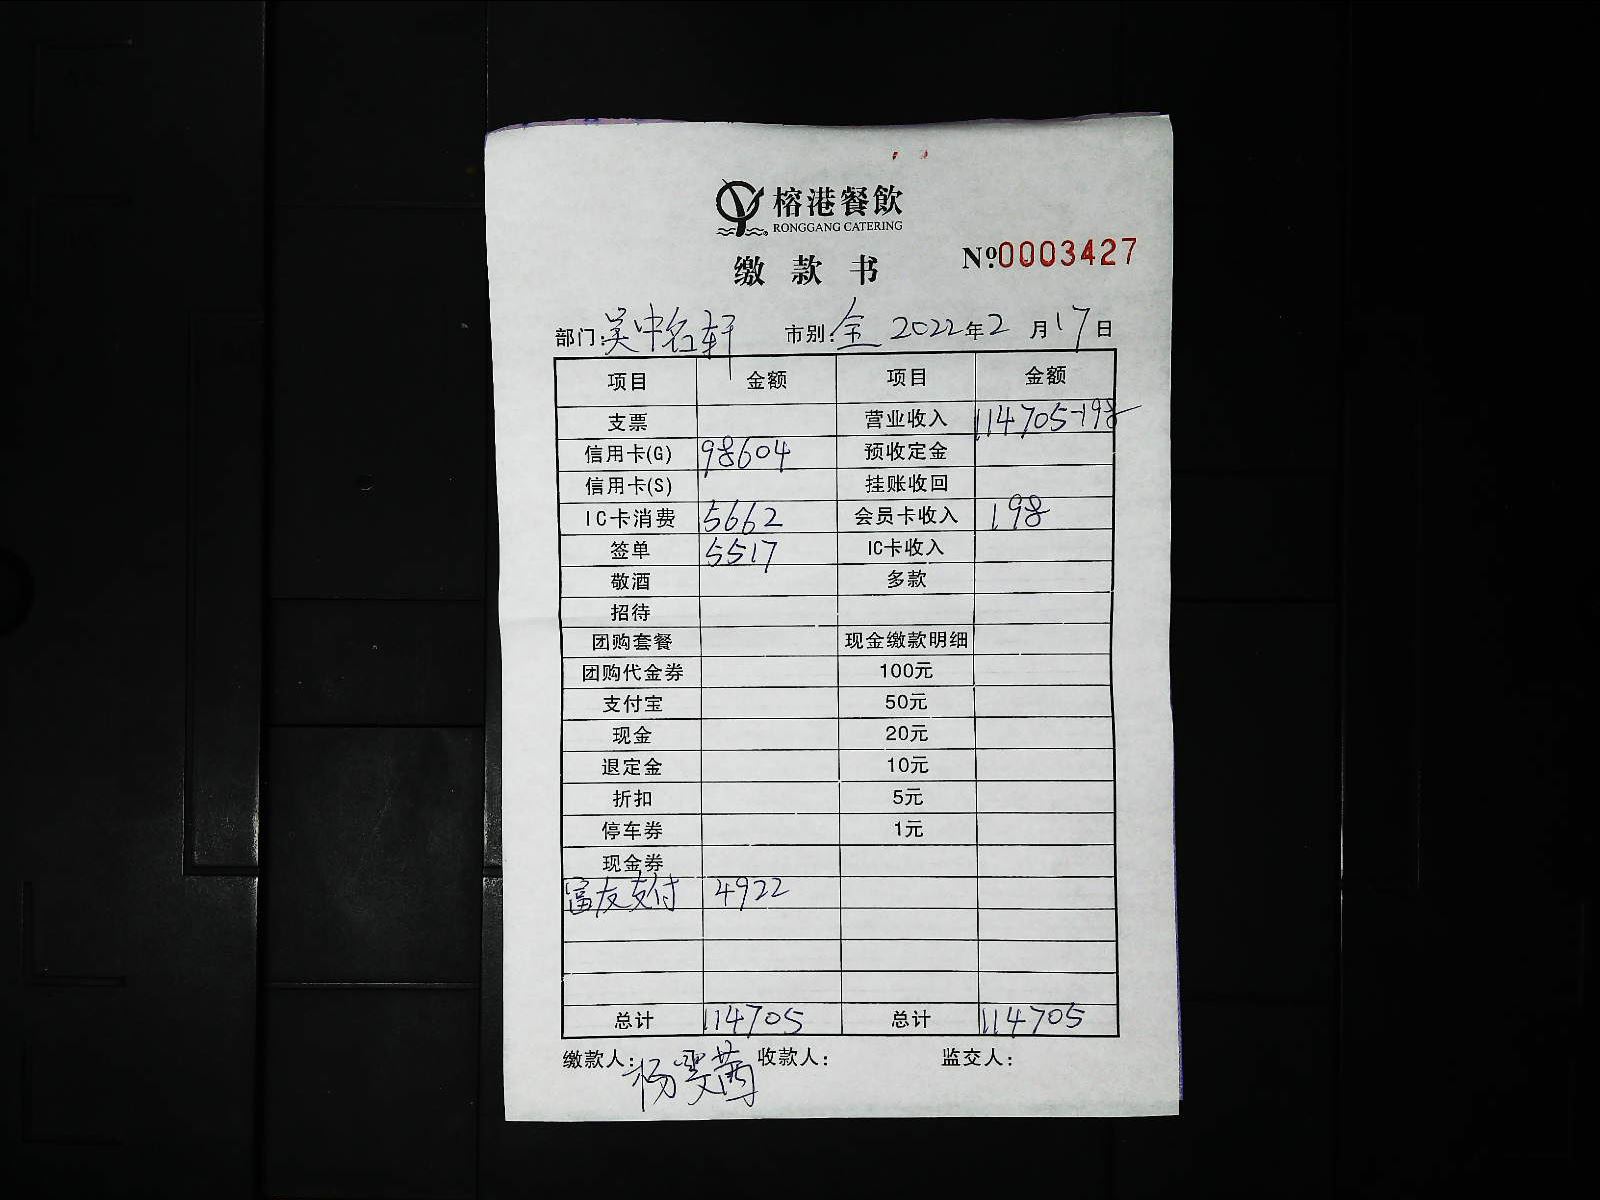 榕港餐飲
RONGGANG CATERING
缴款书
№0003427
部门:吴中名轩 市别:全 2022年2月17日
项目 金额 项目 金额
支票 营业收入 114705-198
信用卡(G) 98604 预收定金
信用卡(S) 挂账收回
IC卡消费 5662 会员卡收入 198
签单 5517 IC卡收入
敬酒 多款
招待
团购套餐 现金缴款明细
团购代金券 100元
支付宝 50元
现金 20元
退定金 10元
折扣 5元
停车券 1元
现金券
富友支付 4922
总计 114705 总计 114705
缴款人:杨 收款人: 监交人: